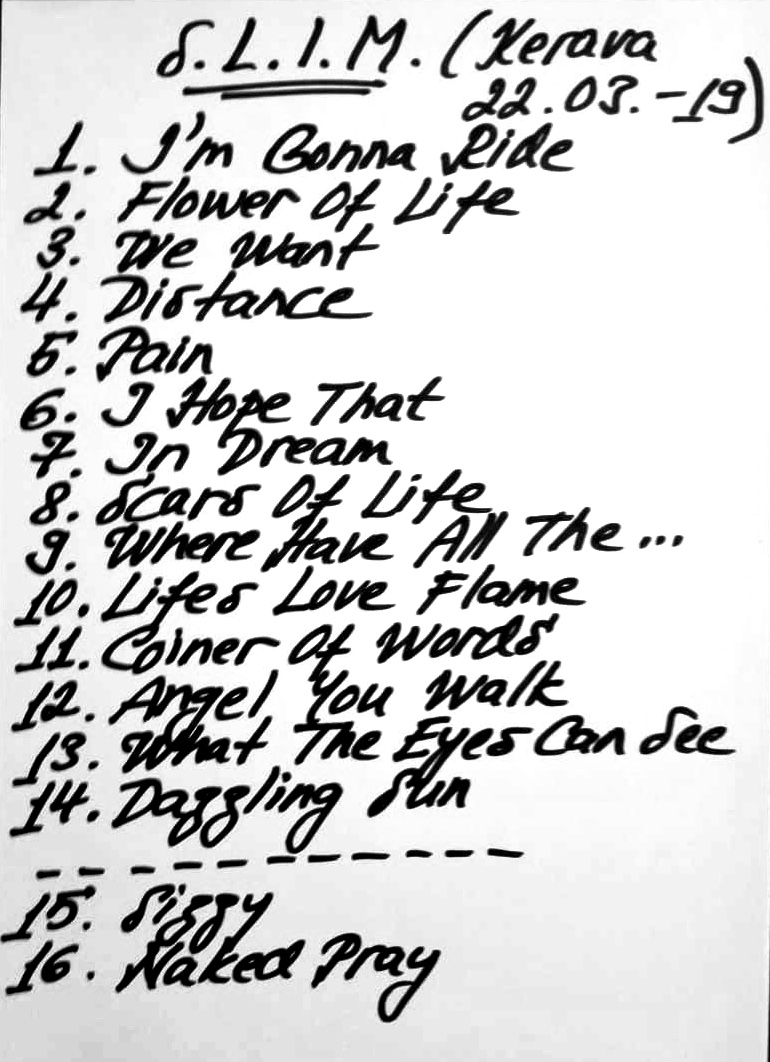 S.L.I.M. (Kerava
22.03.-19)
1. I'm Gonna Ride
2. Flower Of Life
3. We Want
4. Distance
5. Pain
6. I Hope That
7. In Dream
8. Scars Of Life
9. Where Have All The...
10. Lifes Love Flame
11. Coiner Of Words
12. Angel You Walk
13. What The Eyes Can See
14. Dazzling Sun
15. Sizzy
16. Naked Pray